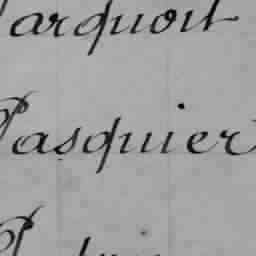 Parquoit
Pasquier